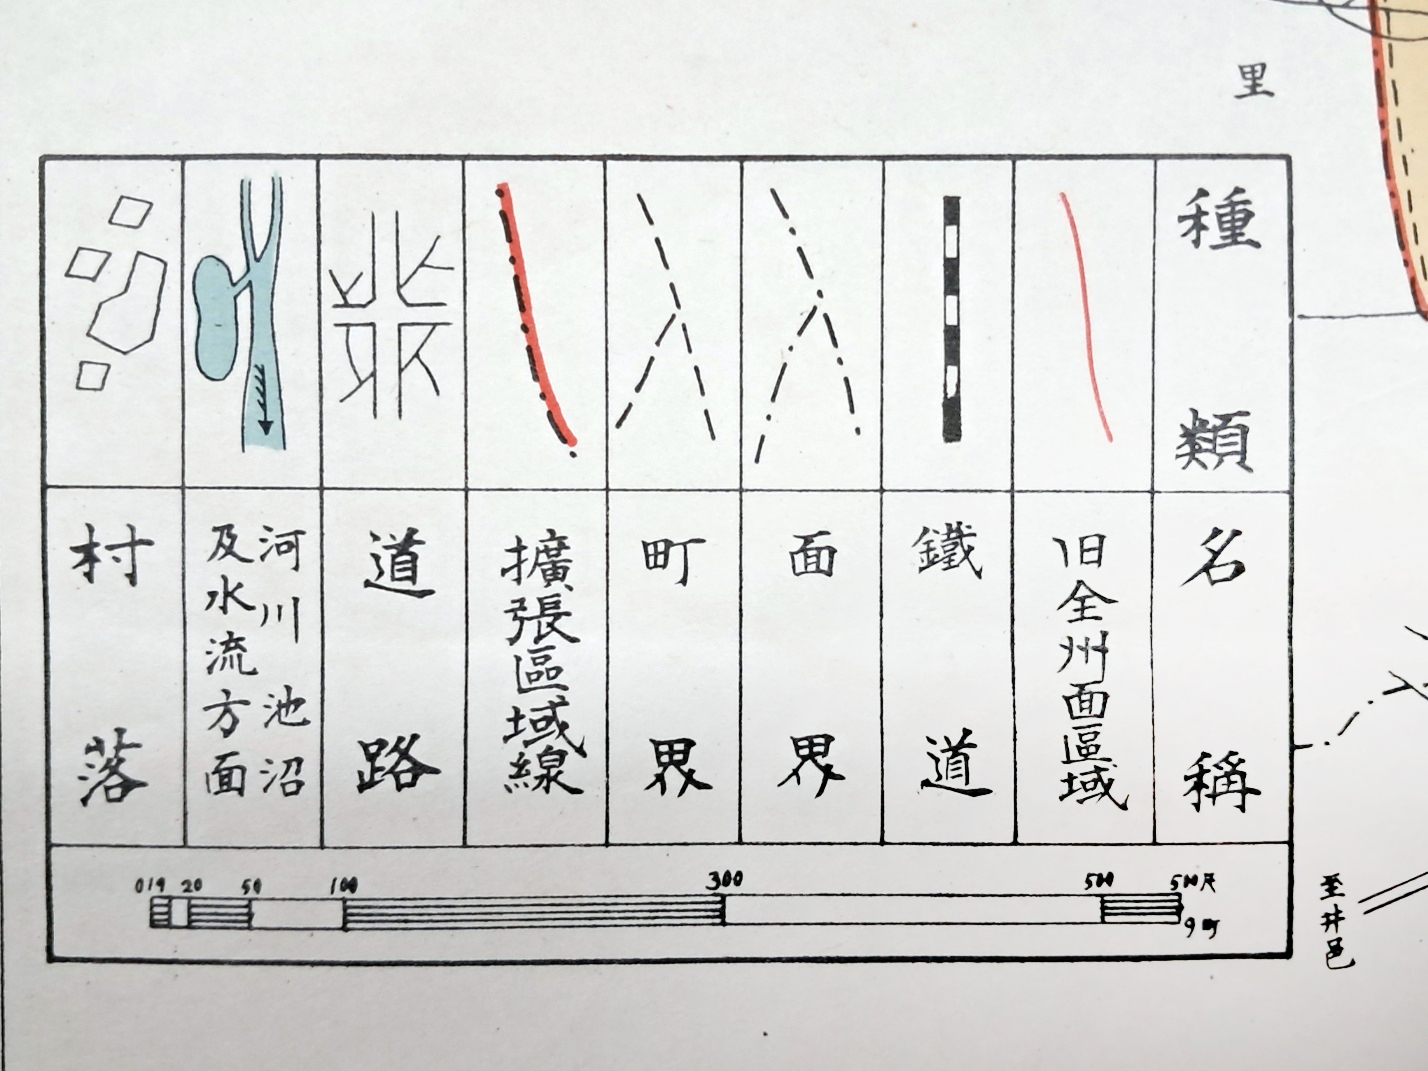 里
種類
名稱
旧全州面區域
鐵道
面界
町界
擴張區域線
道路
河川池沼
及水流方面
村落
20 50 100 300 500
9町
至井邑